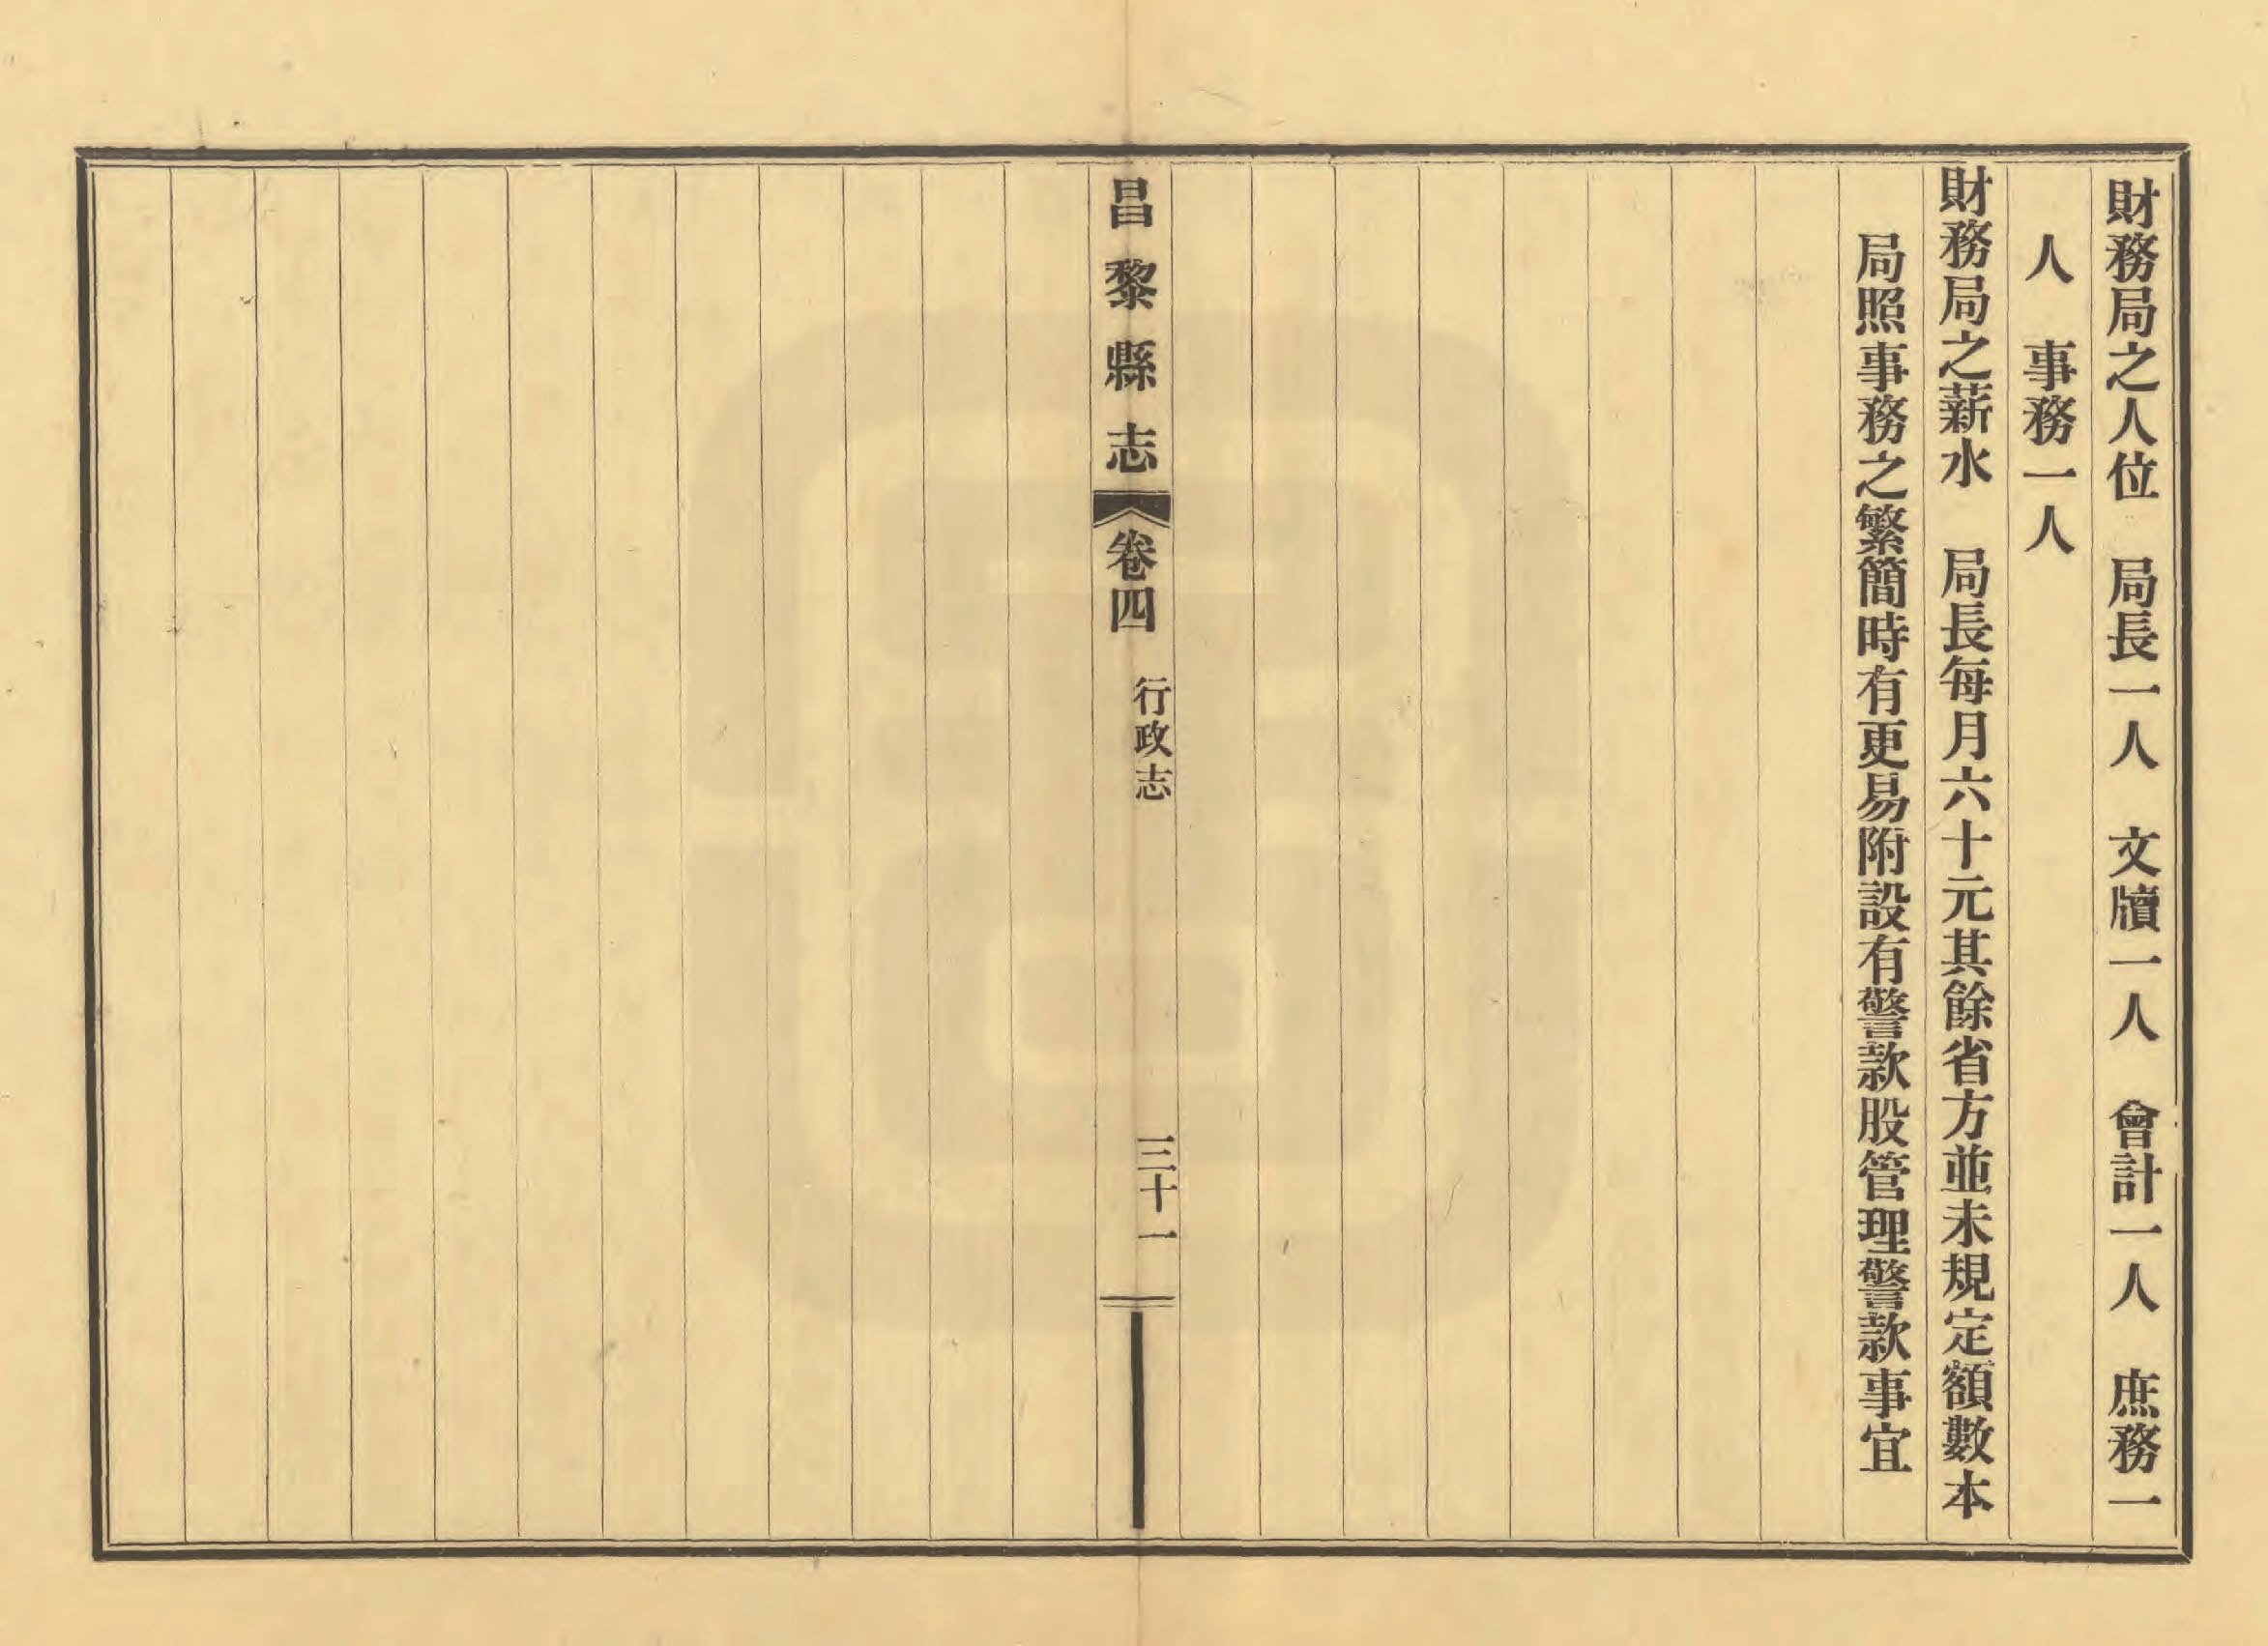 財務局之人位　局長一人　文牘一人　會計一人　庶務一
人　事務一人
財務局之薪水　局長每月六十元其餘省方並未規定額數本
局照事務之繁簡時有更易附設有警款股管理警款事宜
昌黎縣志　卷四　行政志　三十一